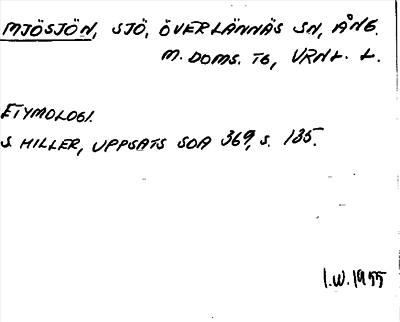 MJÖSJÖN, SJÖ, ÖVERLÄNNÄS SN, ÅNG.
M. DOMS. TG, VRNL. L.
ETYMOLOGI.
S HILLER, UPPSATS SOA 369, S. 135.
I.W. 1955